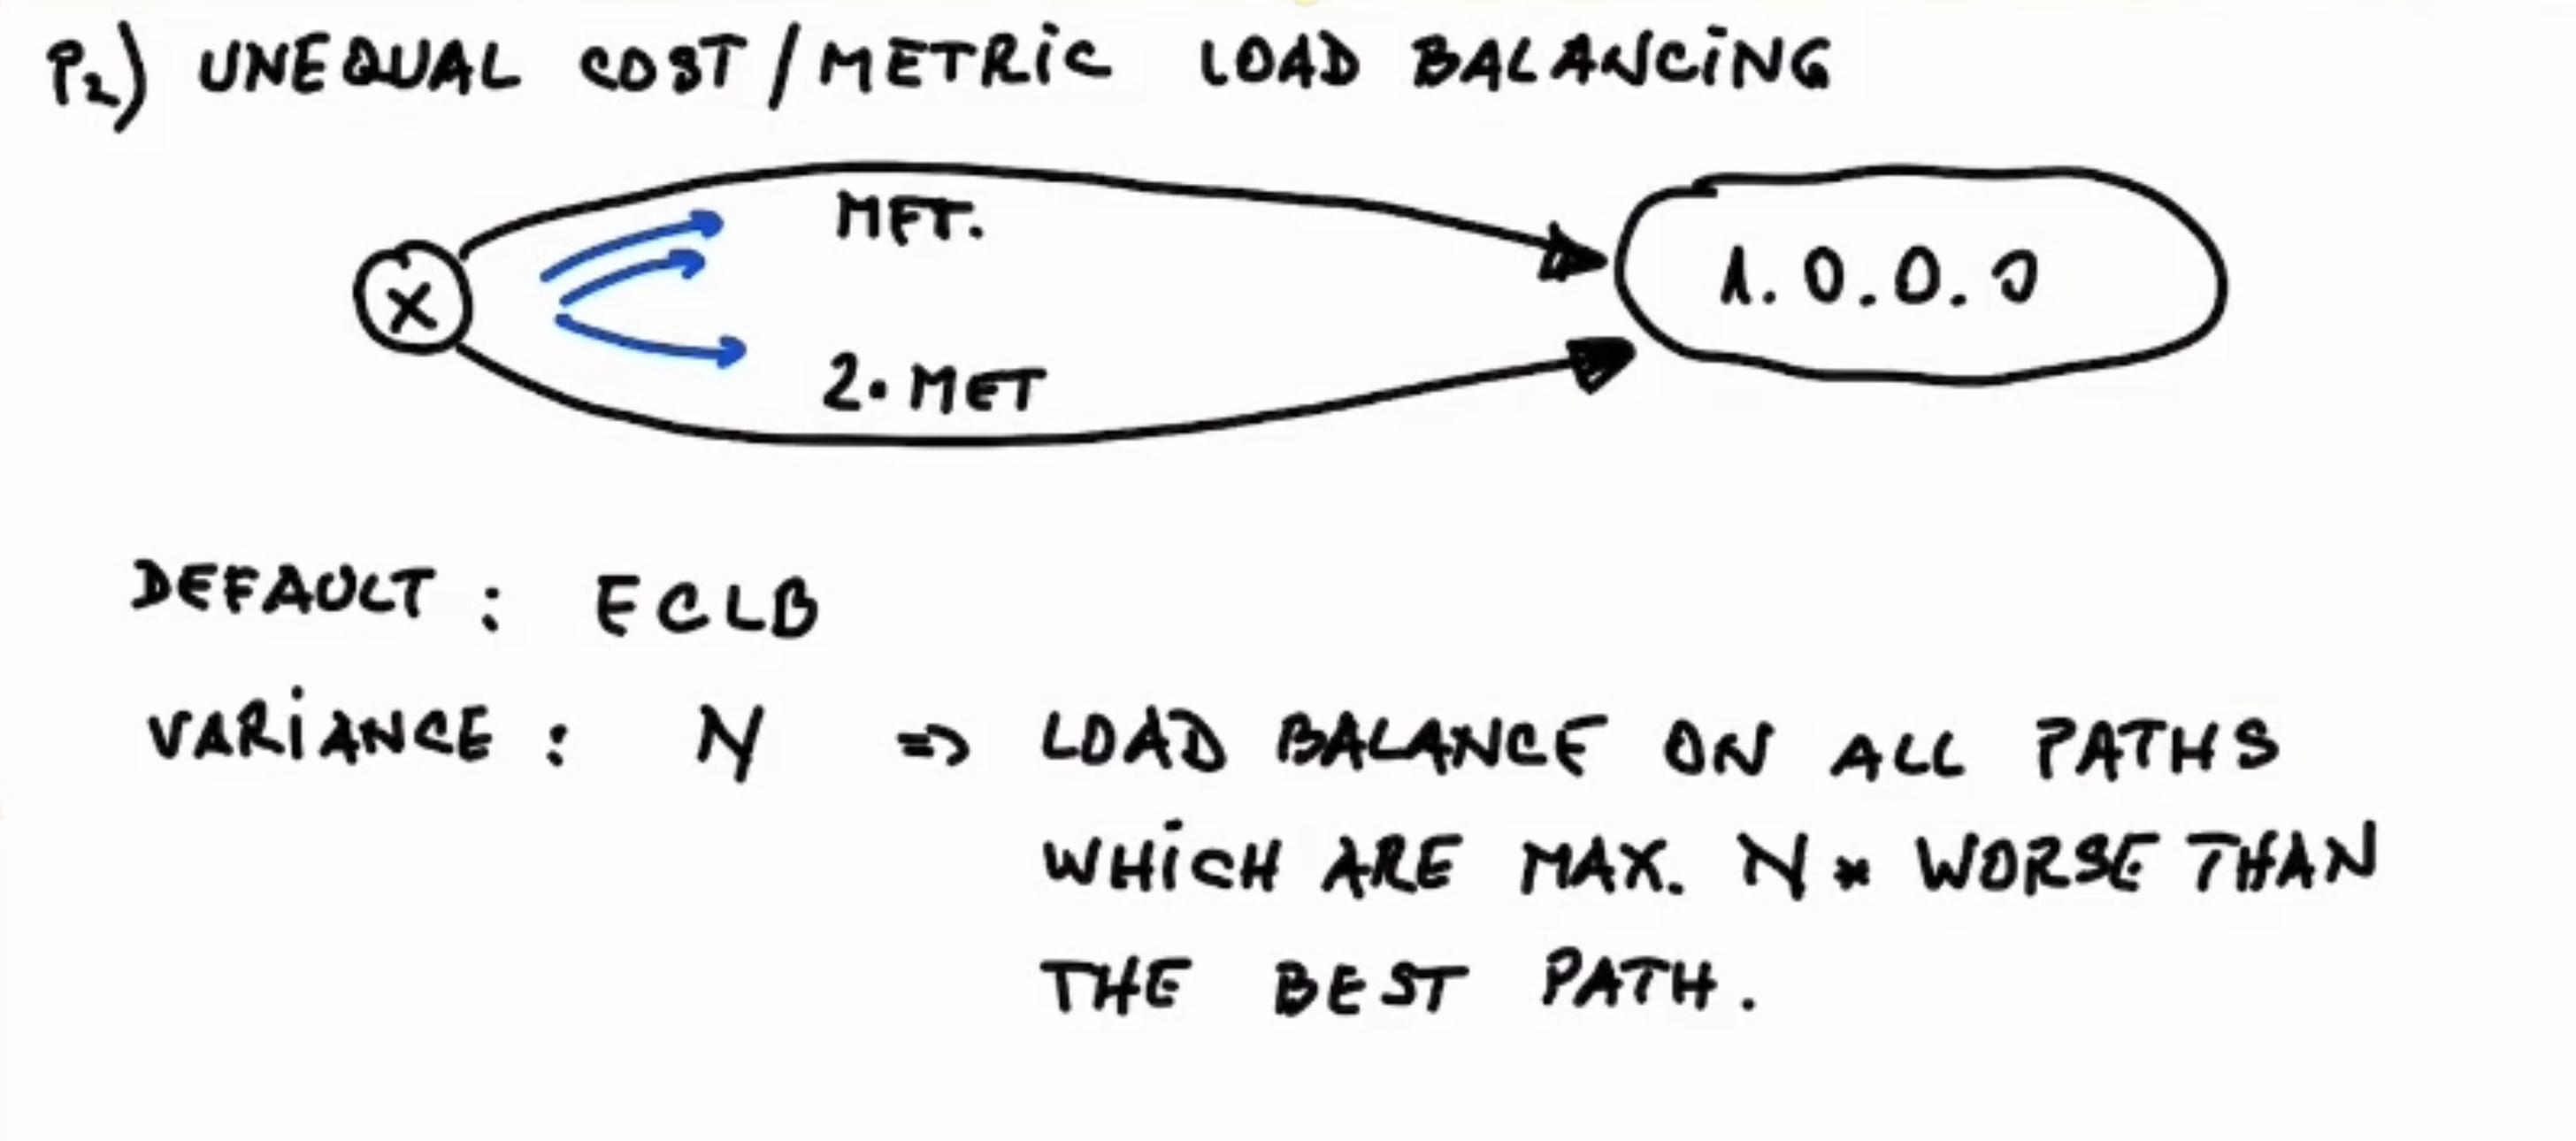 P2) UNEQUAL COST/METRIC LOAD BALANCING
MET.
X
1.0.0.0
2•MET
DEFAULT: ECLB
VARIANCE: N => LOAD BALANCE ON ALL PATHS
WHICH ARE MAX. N* WORSE THAN
THE BEST PATH.